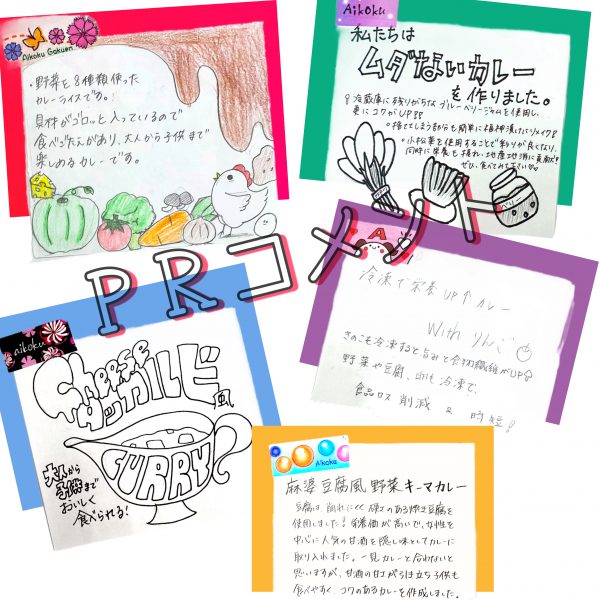 Aikoku Gakuen
・野菜を8種類使った
カレーライスです。
具材がゴロッと入っているので
食べごたえがあり、大人から子供まで
楽しめるカレーです。
Aikoku
私たちは
ムダないカレー
を作りました。
冷蔵庫に残りがちなブルーベリージャムを使用し、
更にコクがUP
捨ててしまう部分も簡単に福神漬けにリメイク
小松菜を使用することで彩りが良くなり、
同時に栄養も摂れ、地産地消に貢献
ぜひ、食べてみて下さい
PRコメント
冷凍で栄養UP↑カレー
With りんご
きのこも冷凍すると旨みと食物繊維がUP
野菜や豆腐、肉も冷凍で、
食品ロス削減 & 時短!
aikoku
Cheese
タッカルビ風
CURRY
大人から
子供まで
おいしく
食べられる!
Aikoku
麻婆豆腐風野菜キーマカレー
豆腐は、崩れにくく硬さのある焼き豆腐を
使用しました!栄養価が高いで、女性を
中心に人気の甘酒を隠し味としてカレーに
取り入れました。一見カレーと合わないと
思いますが、甘酒の甘さが引き立ち子供も
食べやすく、コクのあるカレーを作成しました。